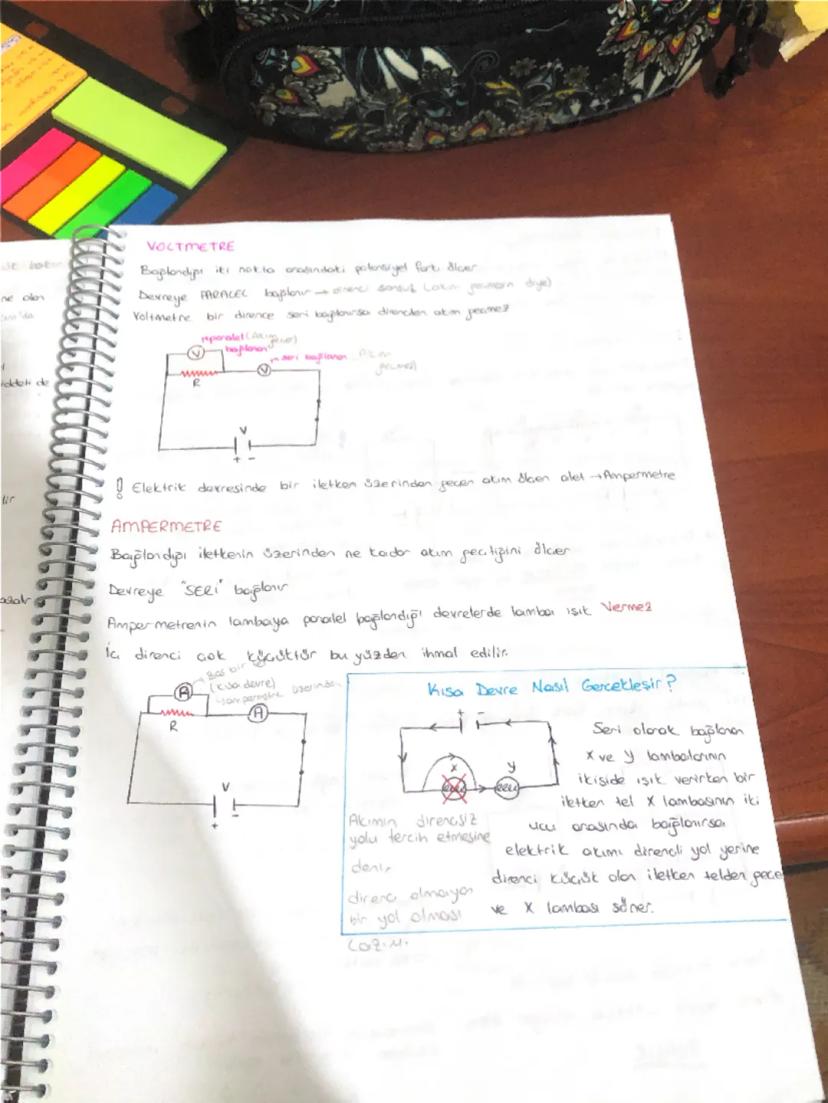 VOLTMETRE
Bağlandığı iki nokta arasındaki potansiyel farkı ölçer
Devreye PARALEL bağlanır → direnci sonsuz (akım geçmesin diye)
Voltmetre bir dirence seri bağlanırsa dirençten akım geçmez
paralel (Akım geçer)
bağlanan
V
→ seri bağlanan Akım geçmez)
V
R
V
+ -
! Elektrik devresinde bir iletken üzerinden geçen akım ölçen alet → Ampermetre
AMPERMETRE
Bağlandığı iletkenin üzerinden ne kadar akım geçtiğini ölçer
Devreye "SERİ" bağlanır
Ampermetrenin lambaya paralel bağlandığı devrelerde lamba ışık Vermez
İç direnci çok küçüktür bu yüzden ihmal edilir.
(kısa devre)
ampermetre üzerinden
A
A
R
V
+ -
Kısa Devre Nasıl Gerçekleşir?
+ -
x
y
Seri olarak bağlanan
x ve y lambalarının
ikiside ışık verirken bir
iletken tel X lambasının iki
ucu arasında bağlanırsa
elektrik akımı dirençli yol yerine
direnci küçük olan iletken telden geçe
ve X lambası söner.
Akımın dirençsiz
yolu tercih etmesine
denir
direnci olmayan
bir yol olması
ne olan